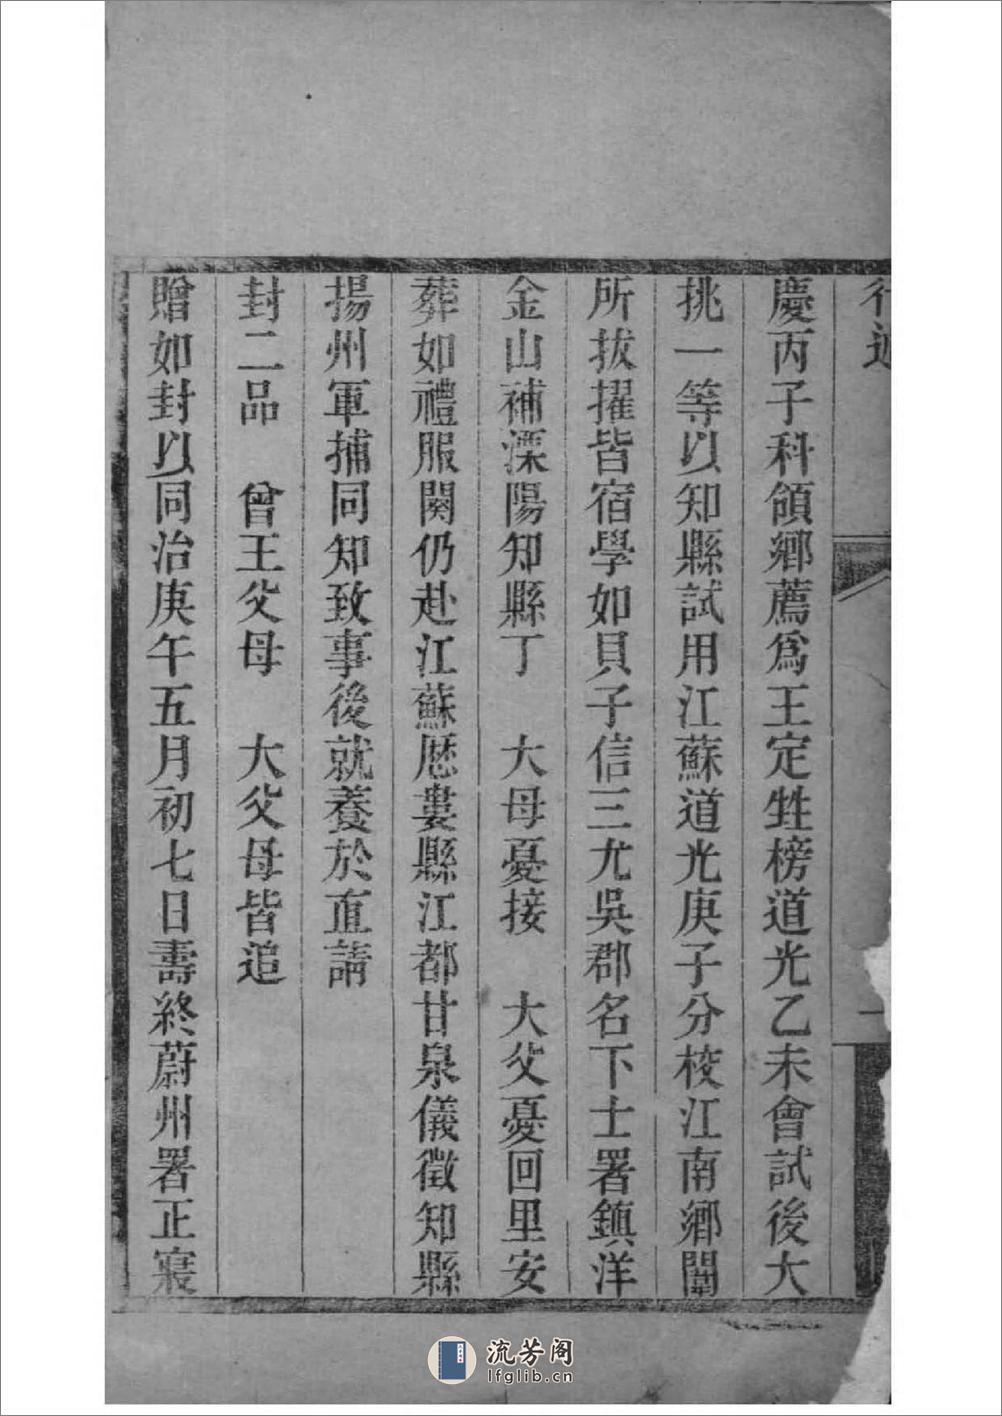 慶丙子科領鄉薦爲王定甡榜道光乙未會試後大
挑一等以知縣試用江蘇道光庚子分校江南鄉闈
所拔擢皆宿學如貝子信三尤吳郡名下士署鎮洋
金山補溧陽知縣丁　大母憂接　大父憂回里安
葬如禮服闋仍赴江蘇歷婁縣江都甘泉儀徵知縣
揚州軍捕同知致事後就養於直請
封二品　曾王父母　大父母皆追
贈如封以同治庚午五月初七日壽終蔚州署正寢
流芳阁
lfglib.cn